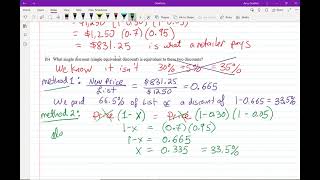 = $1,250 (1-0.30) (1-0.05)
= $1,250 (0.7) (0.95)
= $831.25 is what a retailer pays
(b) What single discount (simple equivalent discount) is equivalent to these two discounts?
We know it isn't 30% + 5% = 35%
method 1: New Price / List = $831.25 / $1250 = 0.665
We paid 66.5% of list or a discount of 1-0.665 = 33.5%
method 2: Price (1-x) = Price (1-0.30) (1-0.05)
1-x = (0.7) (0.95)
1-x = 0.665
x = 0.335 = 33.5%